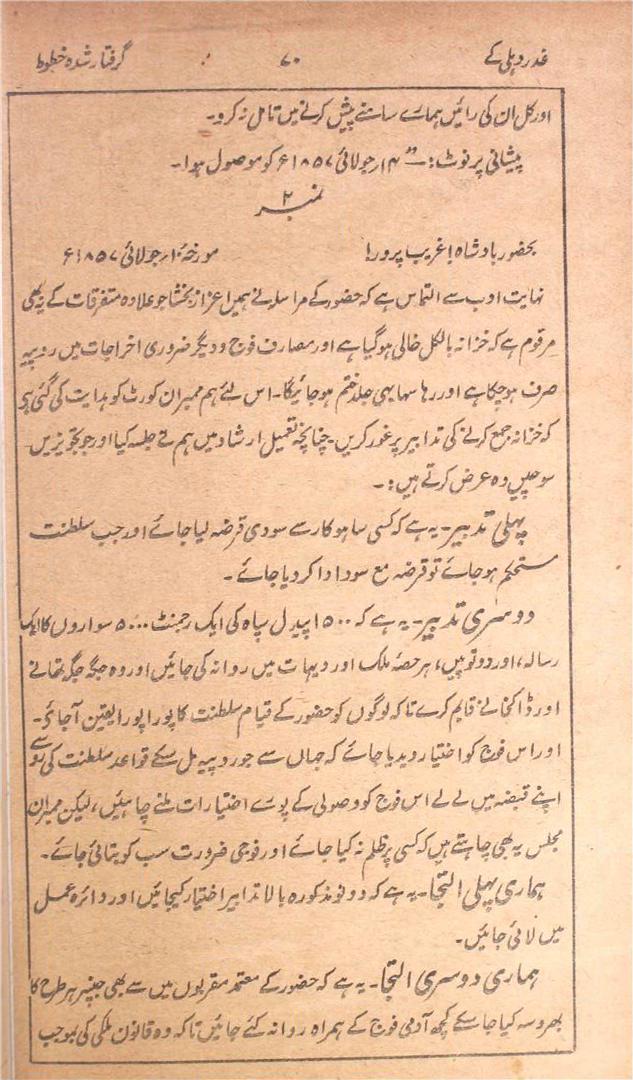 غدر دہلی کے ۷۰ گرفتار شدہ خطوط
اور کل ان کی رائیں ہمارے سامنے پیش کرنے میں تامل نہ کرو۔
پیشانی پر نوٹ:۔ ۱۴ر جولائی ۱۸۵۷ء کو موصول ہوا۔
نمبر ۲
بحضور بادشاہ! غریب پرور! مورخہ ۱۰ر جولائی ۱۸۵۷ء
نہایت ادب سے التماس ہے کہ حضور کے مراسلہ نے ہمیں اعزاز بخشا جو علاوہ متفرقات کے یہ بھی
مرقوم ہے کہ خزانہ بالکل خالی ہو گیا ہے اور مصارف فوج و دیگر ضروری اخراجات میں روپیہ
صرف ہو چکا ہے اور رہا سہا یہی جلد ختم ہو جائیگا۔ اس لئے ہم ممبران کورٹ کو ہدایت کی گئی ہے
کہ خزانہ جمع کرنے کی تدابیر پر غور کریں۔ چنانچہ تعمیل ارشاد میں ہم نے جلسہ کیا اور جو تجویزیں
سوچیں وہ عرض کرتے ہیں:۔
پہلی تدبیر۔ یہ ہے کہ کسی ساہوکار سے سودی قرضہ لیا جائے اور جب سلطنت
مستحکم ہو جائے تو قرضہ مع سود ادا کر دیا جائے۔
دوسری تدبیر۔ یہ ہے کہ ۵۰۰ا پیدل سپاہ کی ایک رجمنٹ ۵۰۰۰ سواروں کا ایک
رسالہ، اور دو توپیں، ہر حصۂ ملک اور دیہات میں روانہ کی جائیں اور وہ جگہ جگہ تھانے
اور ڈاکخانے قایم کرے تاکہ لوگوں کو حضور کے قیام سلطنت کا پورا پورا یقین آ جائے۔
اور اس فوج کو اختیار دیدیا جائے کہ جہاں سے جو روپیہ مل سکے قواعد سلطنت کی رو سے
اپنے قبضہ میں لے لے اس فوج کو وصولی کے پورے اختیارات ملنے چاہئیں، لیکن ممبران
مجلس یہ بھی چاہتے ہیں کہ کسی پر ظلم نہ کیا جائے اور فوجی ضرورت سب کو بتائی جائے۔
ہماری پہلی التجا۔ یہ ہے کہ دونو مذکورہ بالا تدابیر اختیار کیجائیں اور دائرہ عمل
میں لائی جائیں۔
ہماری دوسری التجا۔ یہ ہے کہ حضور کے معتمد مقربوں میں سے بھی جنپر ہر طرح کا
بھروسہ کیا جا سکے کچھ آدمی فوج کے ہمراہ روانہ کئے جائیں تاکہ وہ قانون ملکی کی بموجب